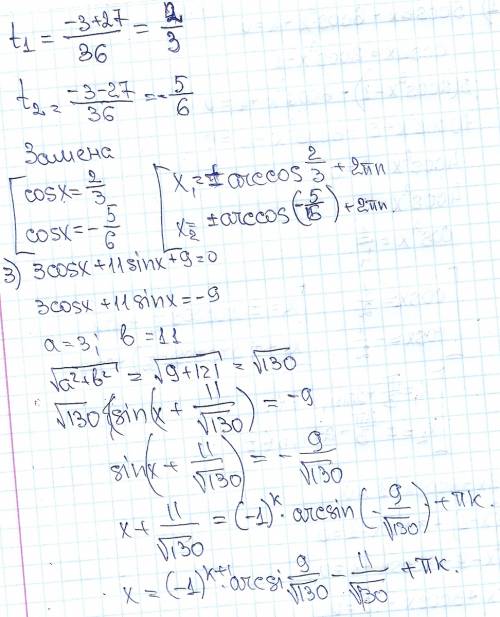 t₁ = (-3+27)/36 = 2/3
t₂ = (-3-27)/36 = -5/6
Замена
cosx = 2/3
cosx = -5/6
x₁ = ± arccos 2/3 + 2πn
x₂ = ± arccos(-5/6) + 2πn.
3) 3cosx + 11sinx + 9 = 0
3cosx + 11sinx = -9
a = 3; b = 11
√(a²+b²) = √(9+121) = √130
√130 (sin(x + 11/√130) = -9
sin(x + 11/√130) = - 9/√130
x + 11/√130 = (-1)ᵏ · arcsin(-9/√130) + πk.
x = (-1)ᵏ⁺¹ · arcsi 9/√130 - 11/√130 + πk.